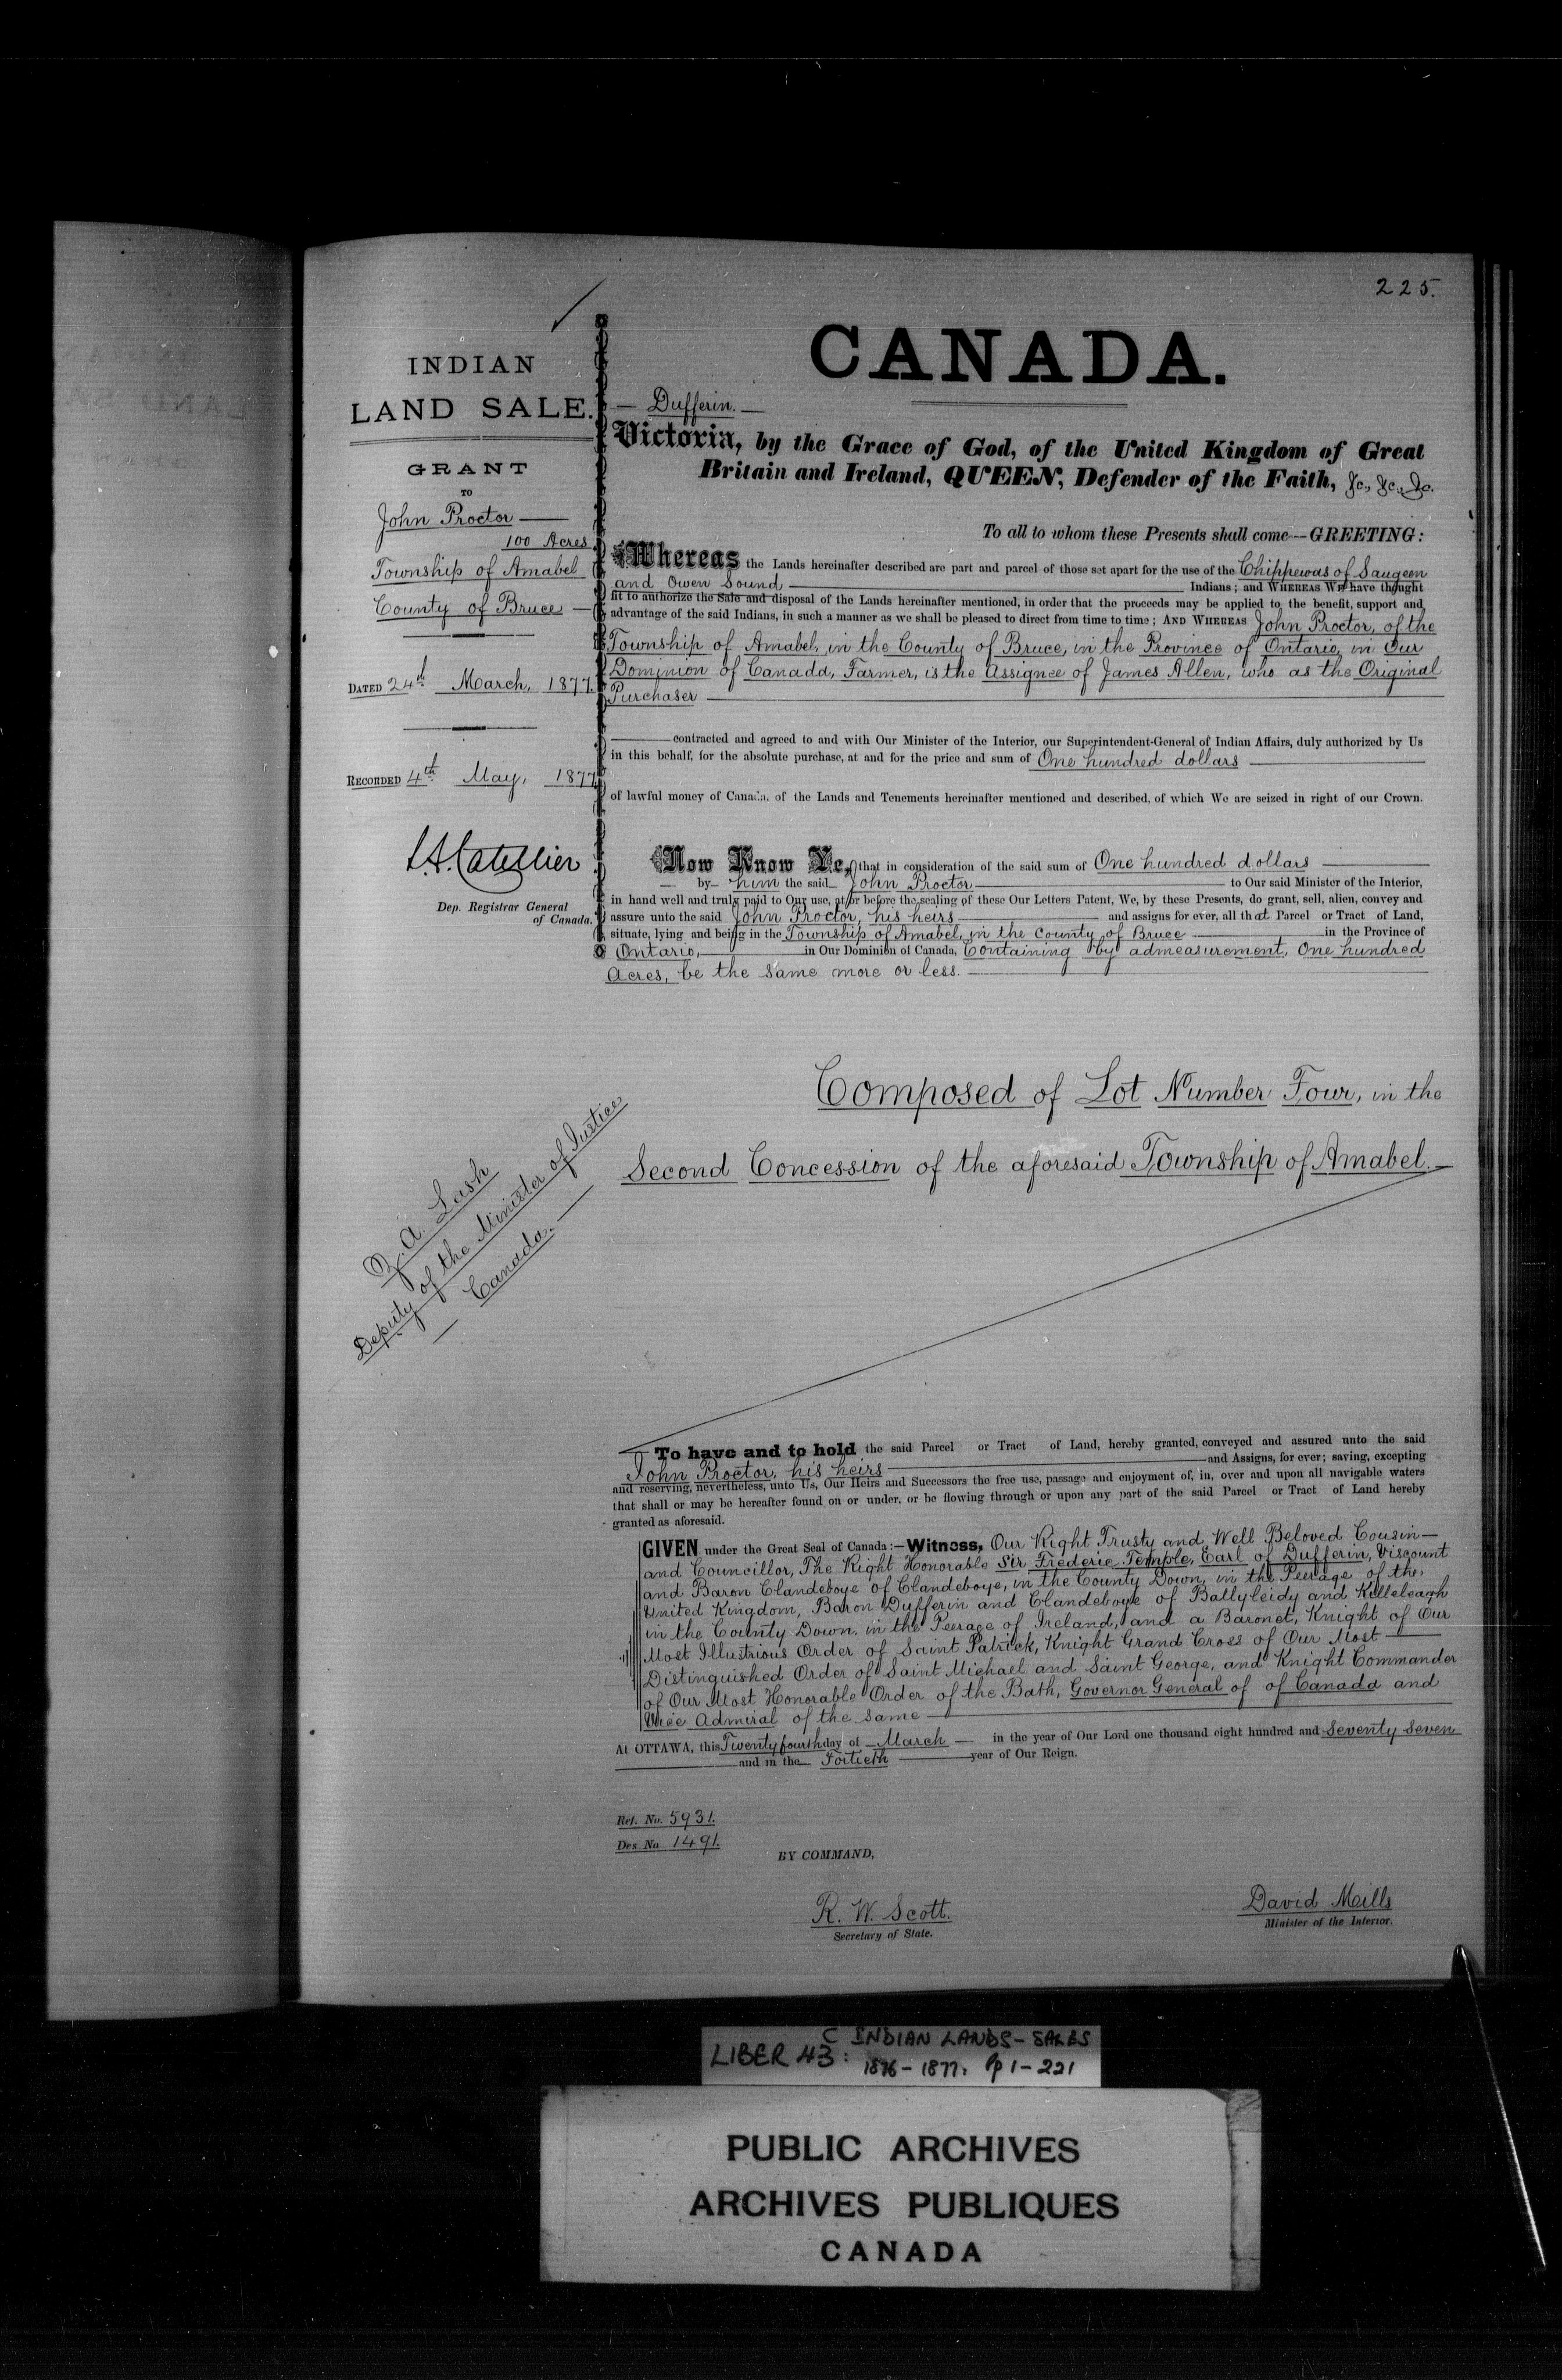 225.
INDIAN
LAND SALE.
GRANT
TO
John Proctor
100 Acres
Township of Amabel
County of Bruce
DATED 24th March, 1877.
RECORDED 4th May, 1877
L.A. Catellier
Dep. Registrar General
of Canada.
Z. A. Lash
Deputy of the Minister of Justice
Canada.
CANADA.
Dufferin.
Victoria, by the Grace of God, of the United Kingdom of Great
Britain and Ireland, QUEEN, Defender of the Faith, &c., &c., &c.
To all to whom these Presents shall come---GREETING:
Whereas the Lands hereinafter described are part and parcel of those set apart for the use of the Chippewas of Saugeen
and Owen Sound Indians; and WHEREAS We have thought
fit to authorize the Sale and disposal of the Lands hereinafter mentioned, in order that the proceeds may be applied to the benefit, support and
advantage of the said Indians, in such a manner as we shall be pleased to direct from time to time; AND WHEREAS John Proctor, of the
Township of Amabel, in the County of Bruce, in the Province of Ontario, in Our
Dominion of Canada, Farmer, is the Assignee of James Allen, who as the Original
Purchaser
contracted and agreed to and with Our Minister of the Interior, our Superintendent-General of Indian Affairs, duly authorized by Us
in this behalf, for the absolute purchase, at and for the price and sum of One hundred dollars
of lawful money of Canada, of the Lands and Tenements hereinafter mentioned and described, of which We are seized in right of our Crown.
Now Know Ye, that in consideration of the said sum of One hundred dollars
by him the said John Proctor to Our said Minister of the Interior,
in hand well and truly paid to Our use, at or before the sealing of these Our Letters Patent, We, by these Presents, do grant, sell, alien, convey and
assure unto the said John Proctor, his heirs and assigns for ever, all that Parcel or Tract of Land,
situate, lying and being in the Township of Amabel, in the County of Bruce in the Province of
Ontario, in Our Dominion of Canada, Containing by admeasurement, One hundred
Acres, be the same more or less.
Composed of Lot Number Four, in the
Second Concession of the aforesaid Township of Amabel.
To have and to hold the said Parcel or Tract of Land, hereby granted, conveyed and assured unto the said
John Proctor, his heirs and Assigns, for ever; saving, excepting
and reserving, nevertheless, unto Us, Our Heirs and Successors the free use, passage and enjoyment of, in, over and upon all navigable waters
that shall or may be hereafter found on or under, or be flowing through or upon any part of the said Parcel or Tract of Land hereby
granted as aforesaid.
GIVEN under the Great Seal of Canada:—Witness, Our Right Trusty and Well Beloved Cousin
and Councillor, The Right Honorable Sir Frederic Temple, Earl of Dufferin, Viscount
and Baron Clandeboye of Clandeboye, in the County Down, in the Peerage of the
United Kingdom, Baron Dufferin and Clandeboye of Ballyleidy and Killeleagh
in the County Down, in the Peerage of Ireland, and a Baronet, Knight of Our
Most Illustrious Order of Saint Patrick, Knight Grand Cross of Our Most
Distinguished Order of Saint Michael and Saint George, and Knight Commander
of Our Most Honorable Order of the Bath, Governor General of of Canada and
Vice Admiral of the same
At OTTAWA, this Twenty fourth day of March in the year of Our Lord one thousand eight hundred and Seventy Seven
and in the Fortieth year of Our Reign.
Ref. No. 5931.
Des. No 1491.
BY COMMAND,
R. W. Scott.
Secretary of State.
David Mills
Minister of the Interior.
LIBER 43: C INDIAN LANDS-SALES
1876-1877. Pp 1-221
PUBLIC ARCHIVES
ARCHIVES PUBLIQUES
CANADA